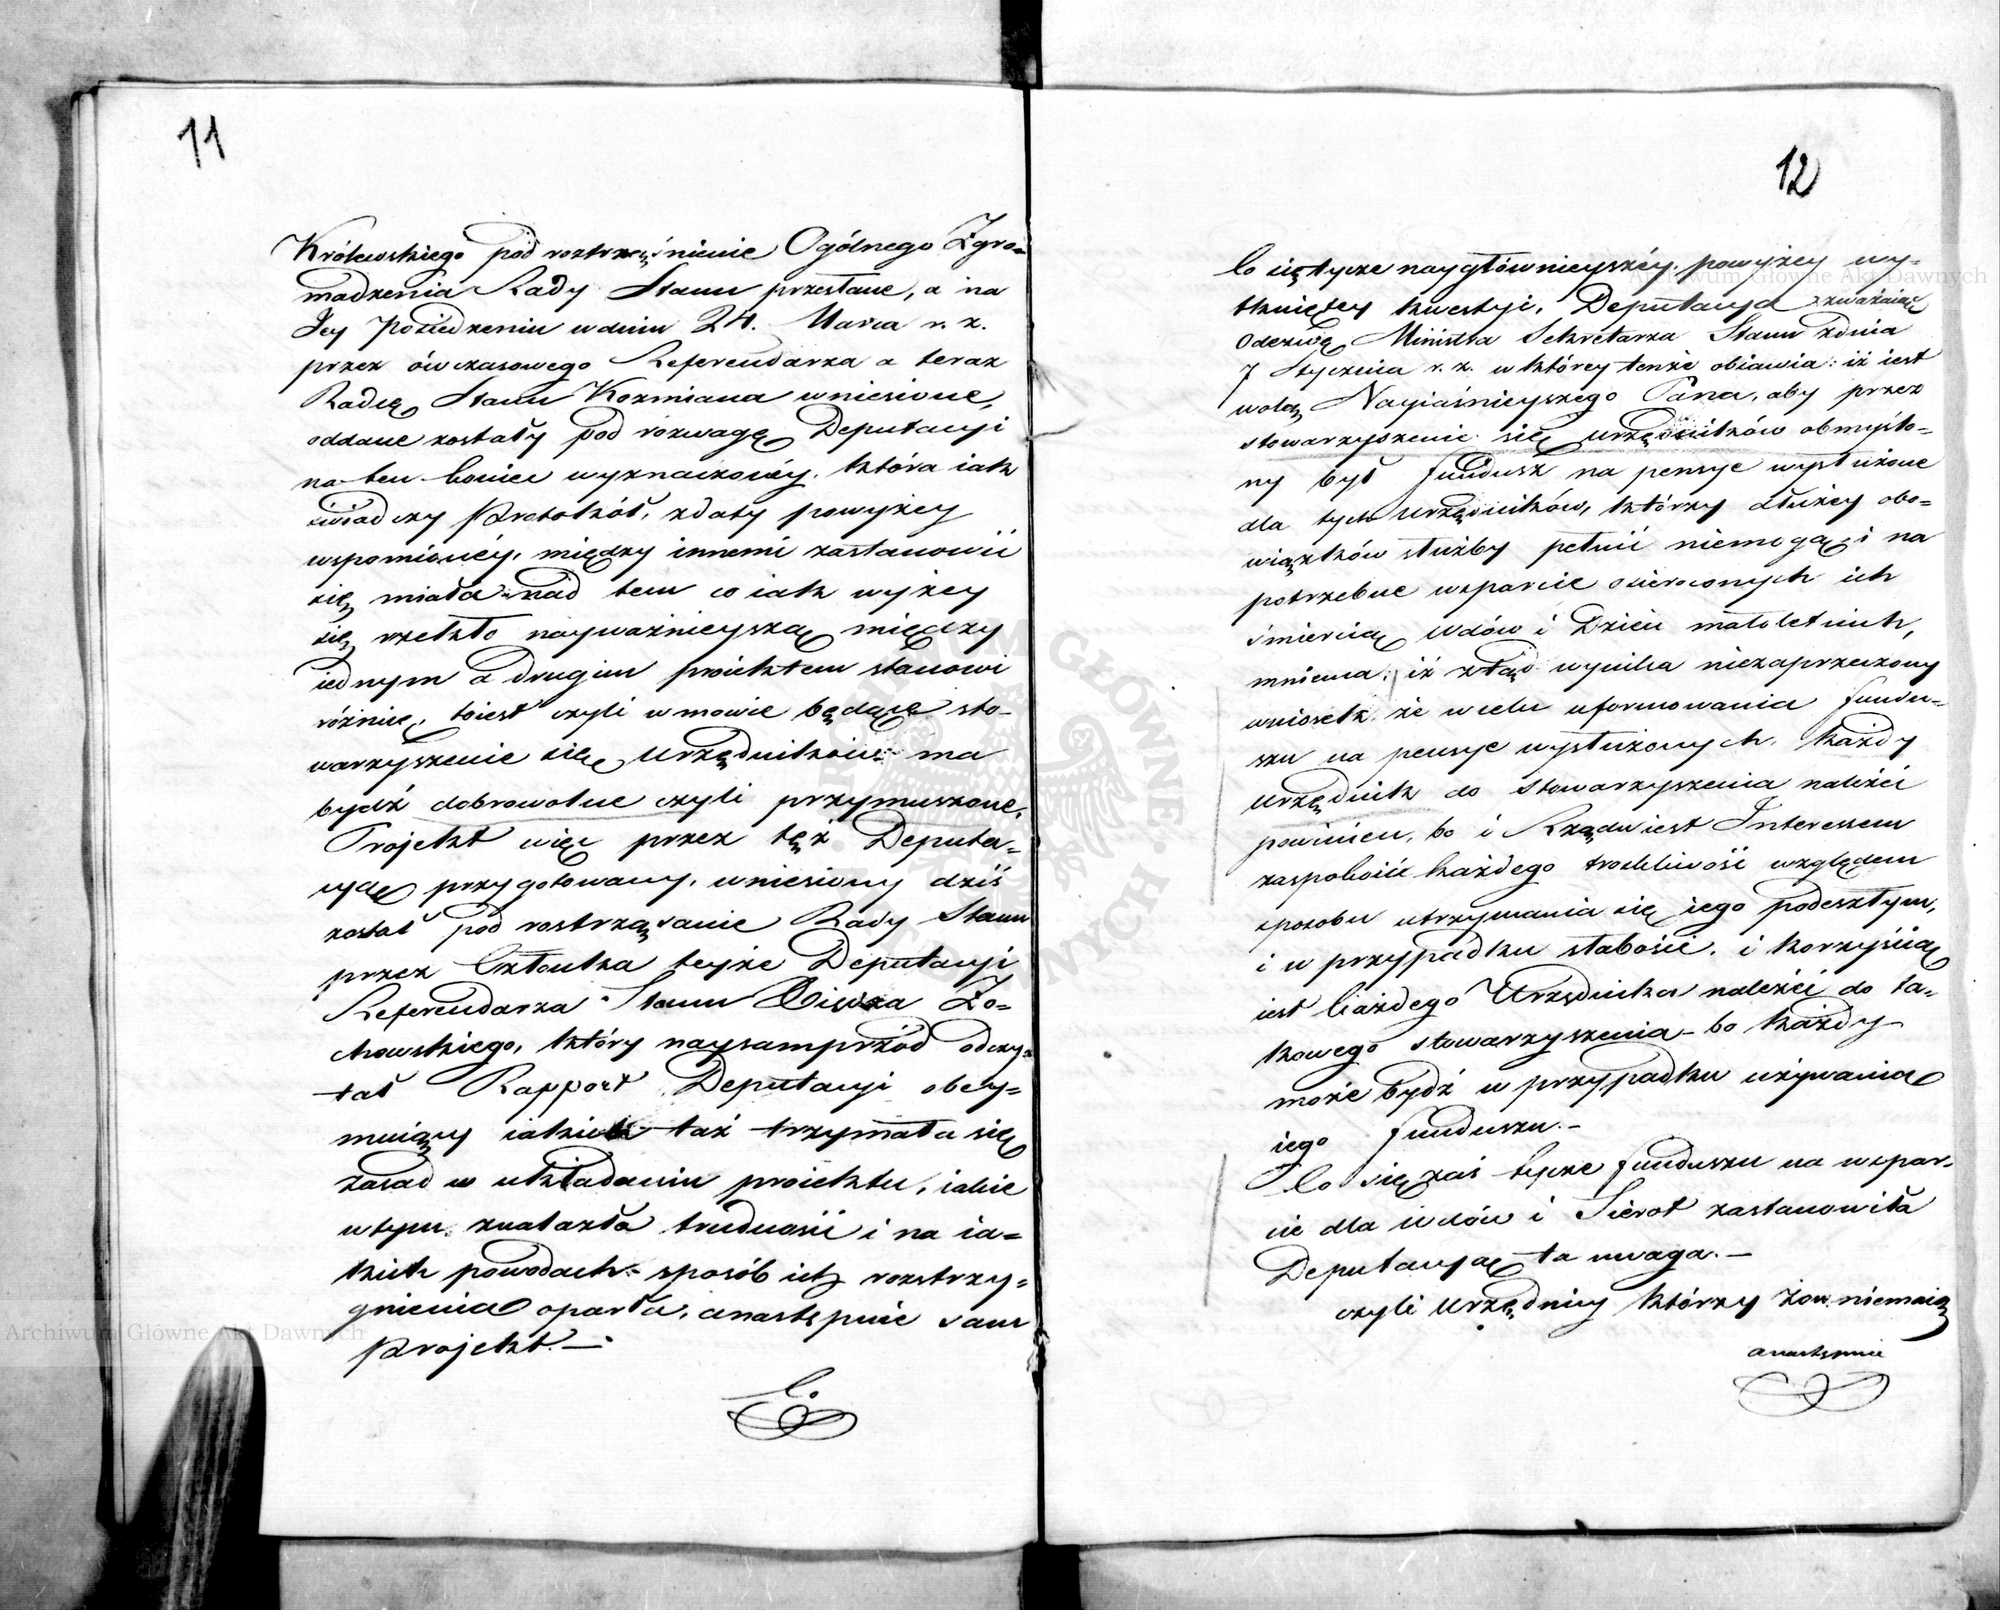 11
Królewskiego pod roztrząśnienie Ogólnego Zgro=
madzenia Rady Stanu przesłane, a na
Jey Posiedzeniu w dniu 24. Marca r. z.
przez ówczasowego Referendarza a teraz
Radcę Stanu Kozmiana wniesione,
oddane zostały pod rozwagę Deputacyi
na ten koniec wyznaczonéy, która iak
świadczy Protokół, z daty powyżey
wspomionéy, między innemi zastanowić
się miała nad tem co iak wyżey
się rzekło nayważnieyszą między
iednym a drugim proiektem stanowi
różnicę, toiest czyli w mowie będące sto-
warzyszenie się Urzędników ma
bydź dobrowolne czyli przymuszone.
Projekt więc przez tęż Deputa=
cyę przygotowany, wniesiony dziś
został pod rostrząsanie Rady Stanu
przez Członka teyże Deputacyi
Referendarza Stanu Xiędza Zo=
chowskiego, który naysamprzód odczy=
tał Rapport Deputacyi obey=
muiący iakich taż trzymała się
zasad w układaniu proiektu, iakie
w tym znalazła trudności i na ia=
kich powodach sposób ich rozstrzy=
gnienia oparła, a następnie sam
Projekt. —
12
Co się tycze naygłównieyszéy, powyżey wy-
tknietey kwestyi, Deputacya zważaiąc
Odezwę Ministra Sekretarza Stanu z dnia
7 Stycznia r. z. w którey tenże obiawia: iż iest
wolą Nayiaśnieyszego Pana, aby przez
stowarzyszenie się urzędników obmyślo=
ny był fundusz na pensye wysłużone
dla tych Urzędników, którzy dłużey obo=
wiązków służby pełnić niemogą i na
potrzebne wsparcie osieroconych ich
śmiercią Wdów i Dzieci małoletnich,
mniema, iż ztąd wynika niezaprzeczony
wniosek, że w celu uformowania fundu=
szu na pensye wysłużonych, każdy
Urzędnik do Stowarzyszenia należeć
powinien, bo i Rządu iest Interessem
zaspokoić każdego troskliwość względem
sposobu utrzymania się jego podeszłym,
i w przypadku słabości, i korzyścią
iest każdego Urzędnika należeć do ta=
kowego stowarzyszenia – bo każdy
może bydź w przypadku używania
iego funduszu. –
Co się zaś tycze funduszu na wspar-
cie dla Wdów i Sierot zastanowiła
Deputacyą ta uwaga. —
czyli Urzędnicy którzy żon niemaią
a następnie